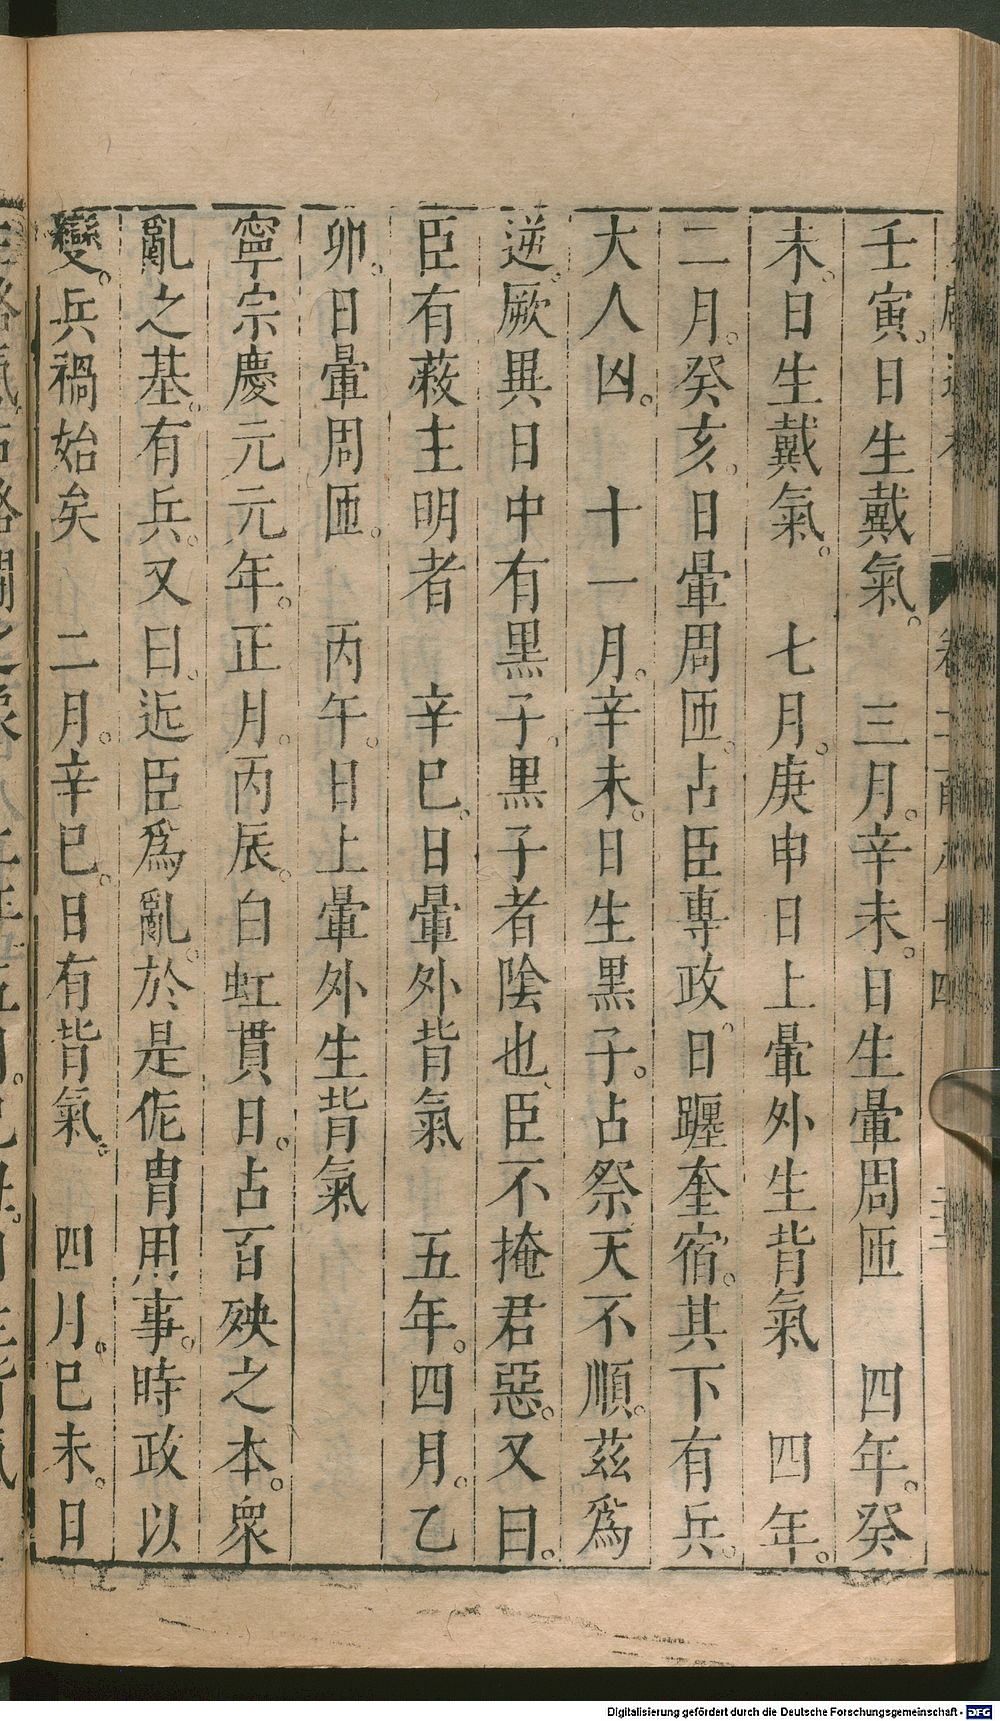 壬寅。日生戴氣。　三月。辛未。日生暈周匝　四年。癸
未。日生戴氣。　七月。庚申日上暈外生背氣　四年。
二月。癸亥。日暈周匝。占臣專政。日躔奎宿。其下有兵。
大人凶。　十一月。辛未。日生黑子。占祭天不順。茲爲
逆。厥異日中有黑子。黑子者陰也、臣不掩君惡。又曰。
臣有蔽主明者　辛巳。日暈外背氣　五年。四月。乙
卯。日暈周匝。　丙午。日上暈外生背氣
寧宗慶元元年。正月。丙辰。白虹貫日。占百殃之本。衆
亂之基。有兵。又曰。近臣爲亂。於是侂冑用事。時政以
變。兵禍始矣　二月。辛巳。日有背氣。　四月。巳未。日
Digitalisierung gefördert durch die Deutsche Forschungsgemeinschaft - DFG